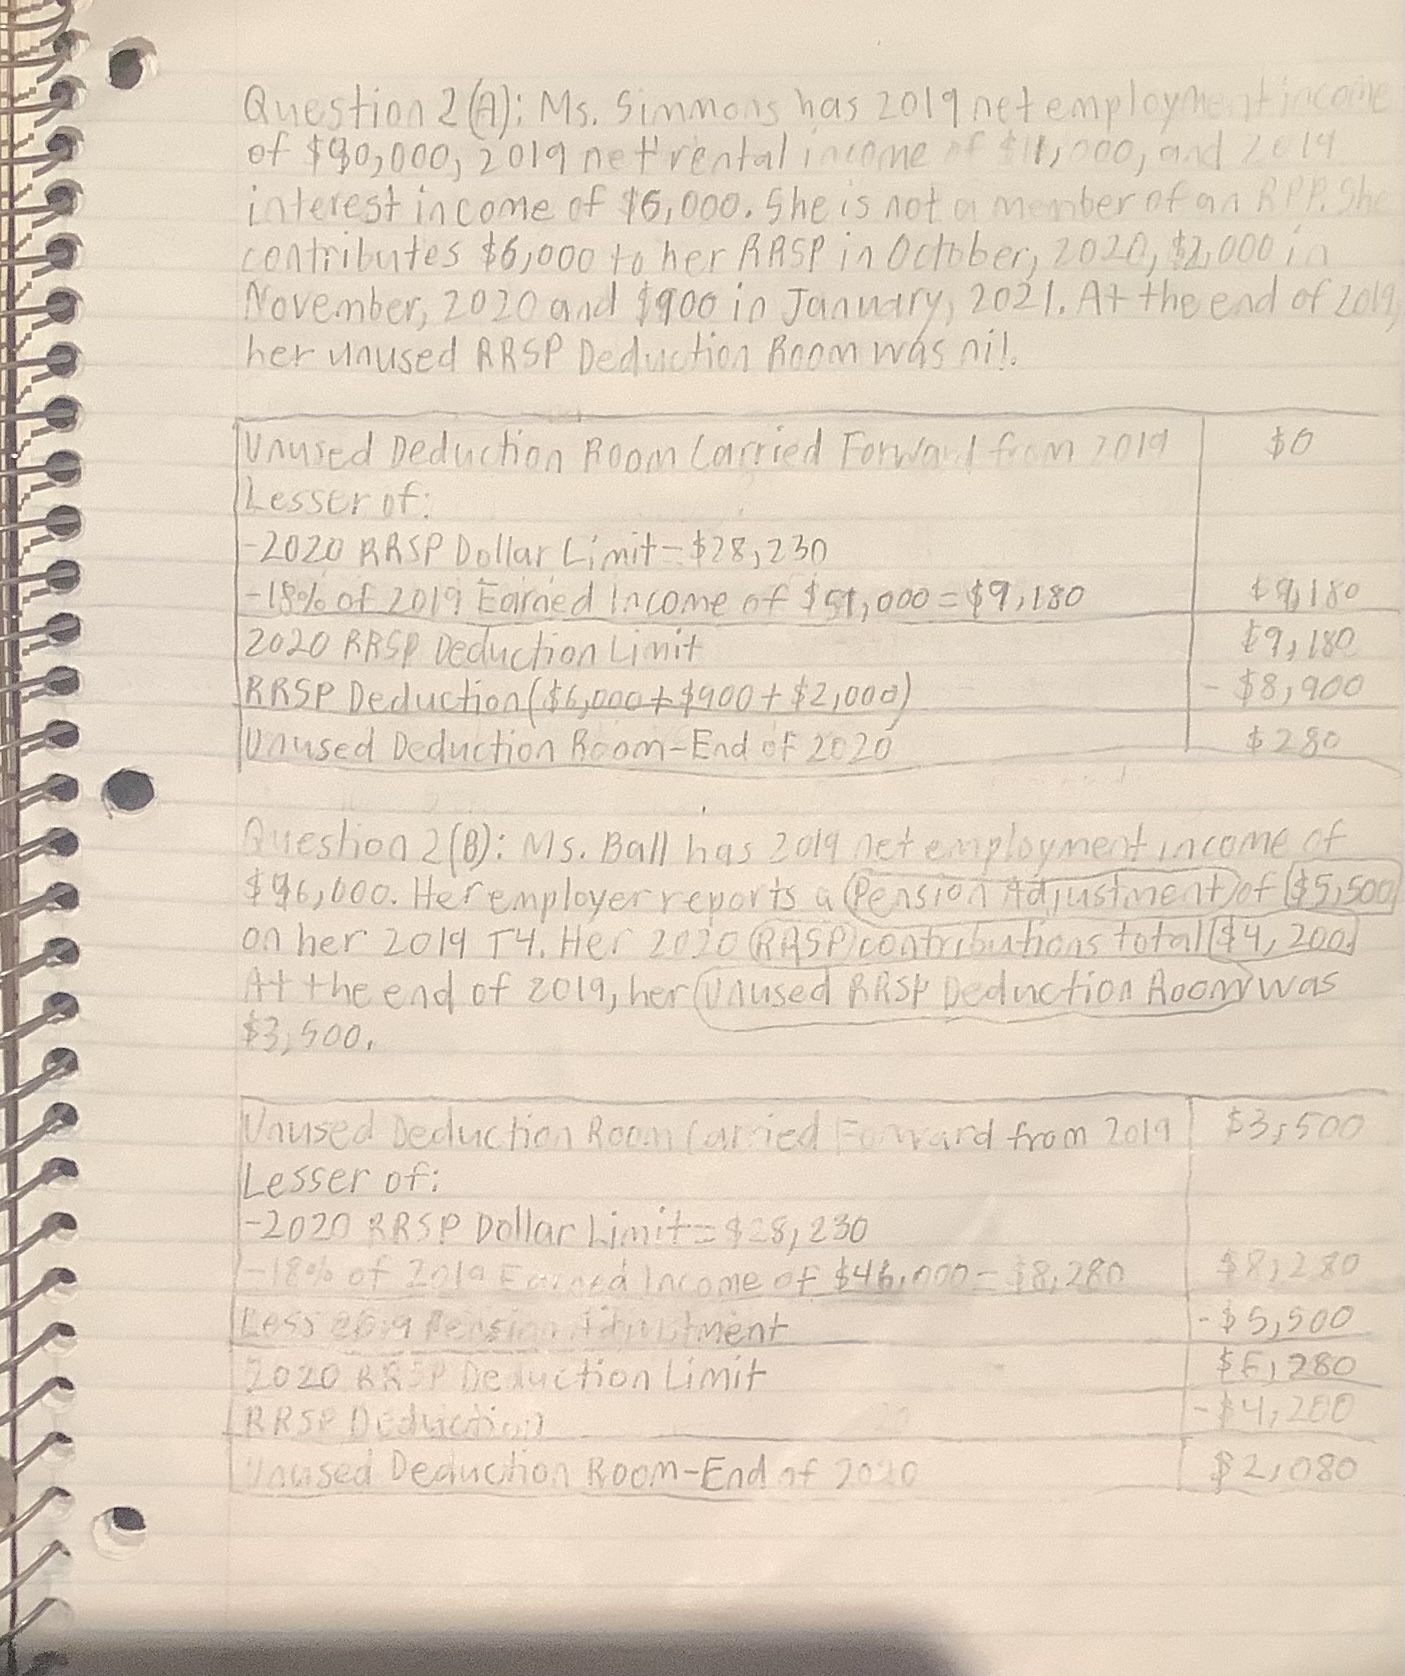 Question 2(A): Ms. Simmons has 2019 net employment income
of $90,000, 2019 net rental income of $11,000, and 2019
interest income of $6,000. She is not a member of an RPP. She
contributes $6,000 to her RRSP in October, 2020, $2,000 in
November, 2020 and $900 in January, 2021. At the end of 2019,
her unused RRSP Deduction Room was nil.
Unused Deduction Room Carried Forward from 2019 $0
Lesser of:
-2020 RRSP Dollar Limit-$28,230
-18% of 2019 Earned Income of $51,000=$9,180 $9,180
2020 RRSP Deduction Limit $9,180
RRSP Deduction($6,000+$900+$2,000) -$8,900
Unused Deduction Room-End of 2020 $280
Question 2(B): Ms. Ball has 2019 net employment income of
$46,000. Her employer reports a Pension Adjustment of $5,500
on her 2019 T4. Her 2020 RRSP contributions total $4,200.
At the end of 2019, her Unused RRSP Deduction Room was
$3,500.
Unused Deduction Room Carried Forward from 2019 $3,500
Lesser of:
-2020 RRSP Dollar Limit=$28,230
-18% of 2019 Earned Income of $46,000=$8,280 $8,280
Less 2019 Pension Adjustment -$5,500
2020 RRSP Deduction Limit $6,280
RRSP Deduction -$4,200
Unused Deduction Room-End of 2020 $2,080